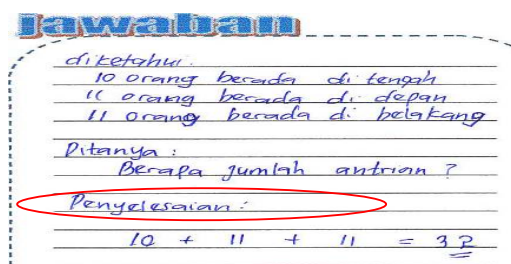 jawaban
diketahui.
10 orang berada di tengah
11 orang berada di depan
11 orang berada di belakang
Ditanya :
Berapa jumlah antrian ?
Penyelesaian :
10 + 11 + 11 = 32